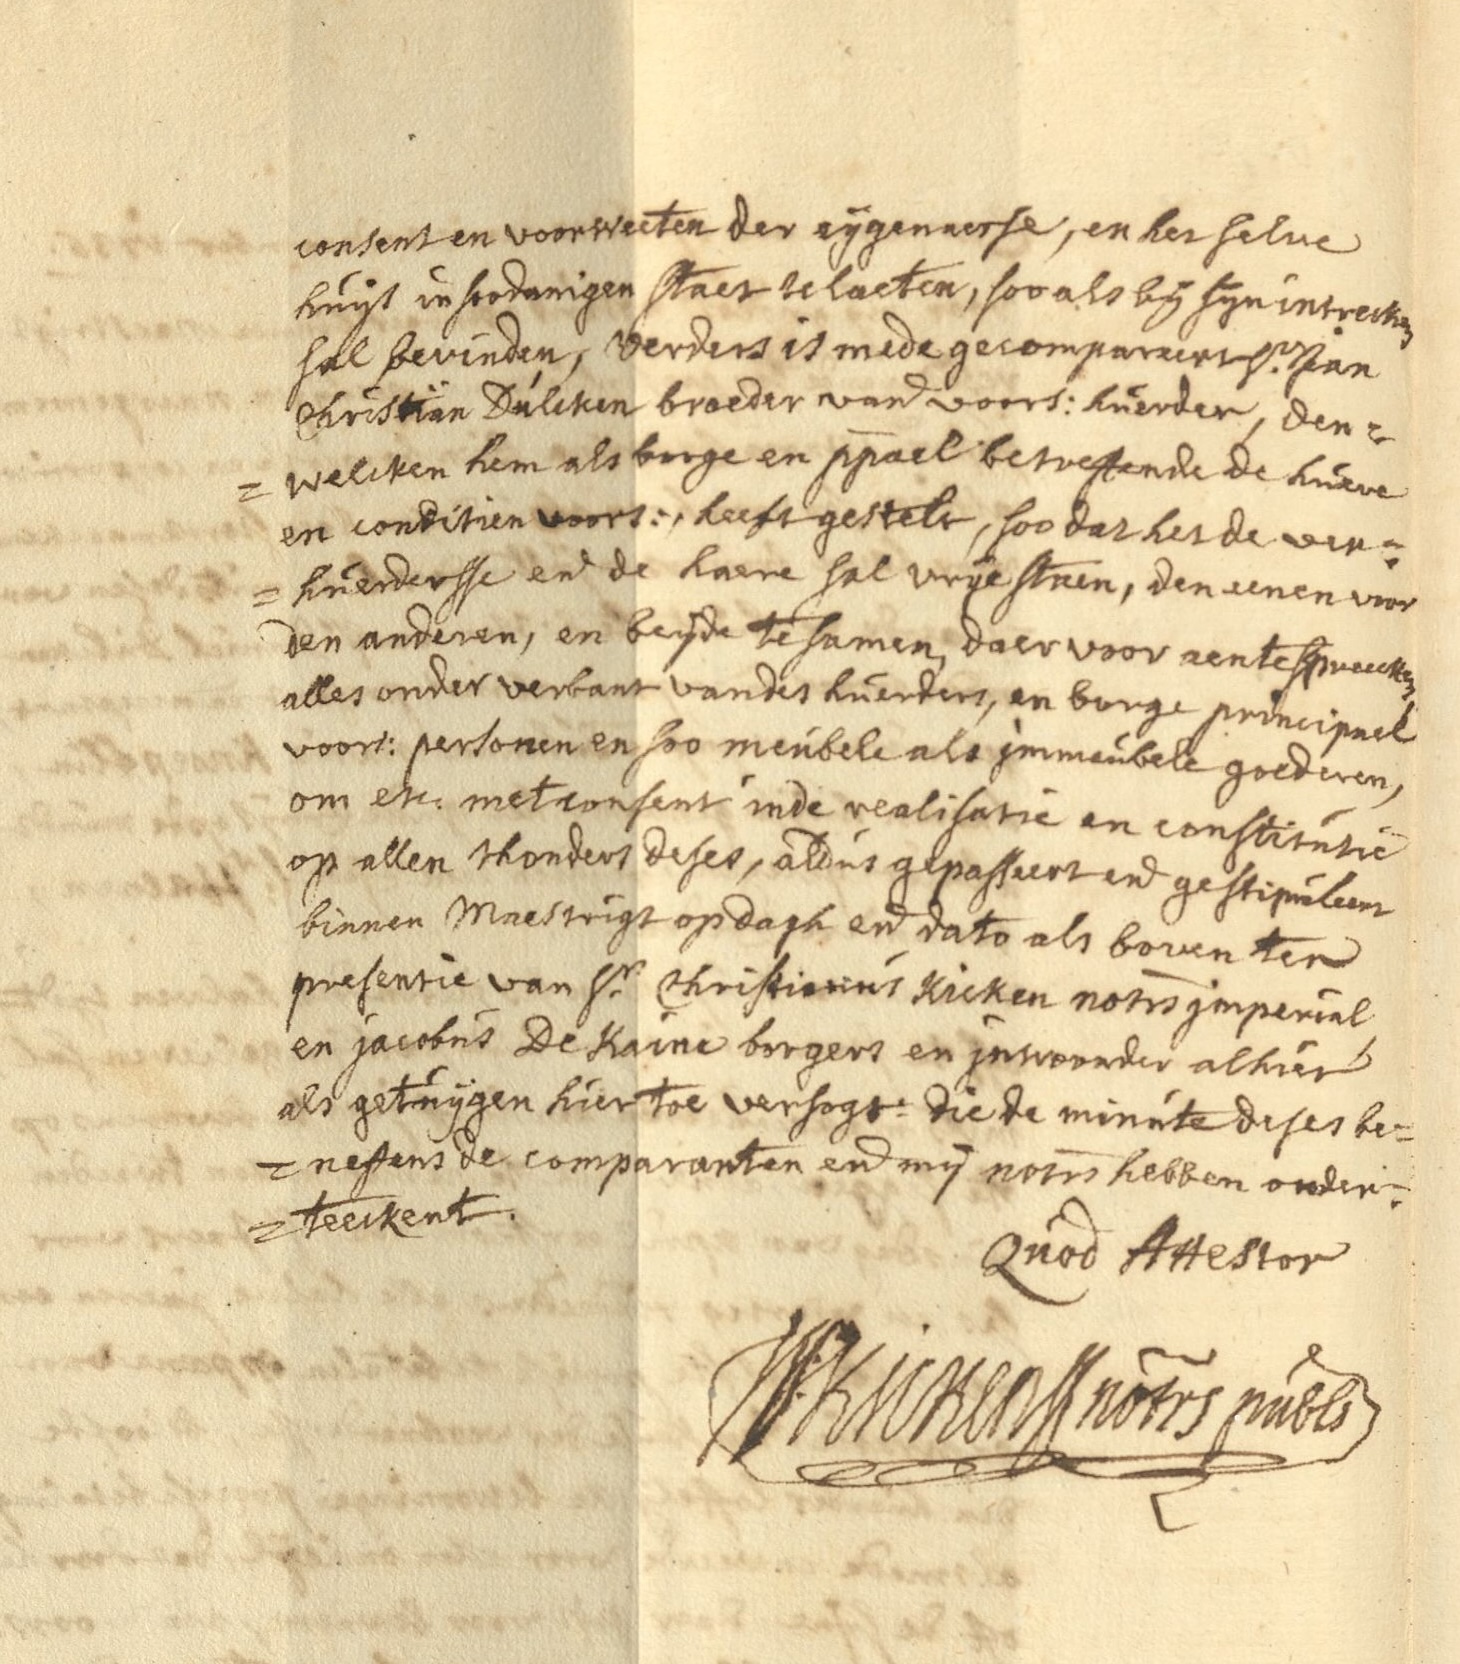 consent en voorweeten der eijgenaerse, en het selve
huijs in soodanigen staet te laeten, soo als bij sijn intrecken
sal bevinden, Verders is mede gecompareert Sr. Jan
Christiaan Dulcken broeder vand voors: huerder, den=
=welcken hem als borge en ppael betreffende de huere
en conditien voors:, heeft gestelt, soo dat het de ver=
=huerdersse end de haere sal vrije staen, den eenen voor
den anderen, en beijde te samen, daer voor aentespreecken,
alles onder verbant van des huerders, en borge principael
voors: personen en soo meubele als immeubele goederen,
om etc: met consent inde realisatie en constitutie
op allen thonders deses, aldus gepasseert end gestipuleert
binnen Maestrigt op dagh end dato als boven ter
presentie van Sr. Christianus Kicken notrs imperial
en jacobus De Kaine borgers en inwoonder alhier
als getuijgen hier toe versogt: die de minute deses be=
=neffens de comparanten end mij notrs hebben onder=
=teeckent.
Quod Attestor
W: Kicken notrs publs